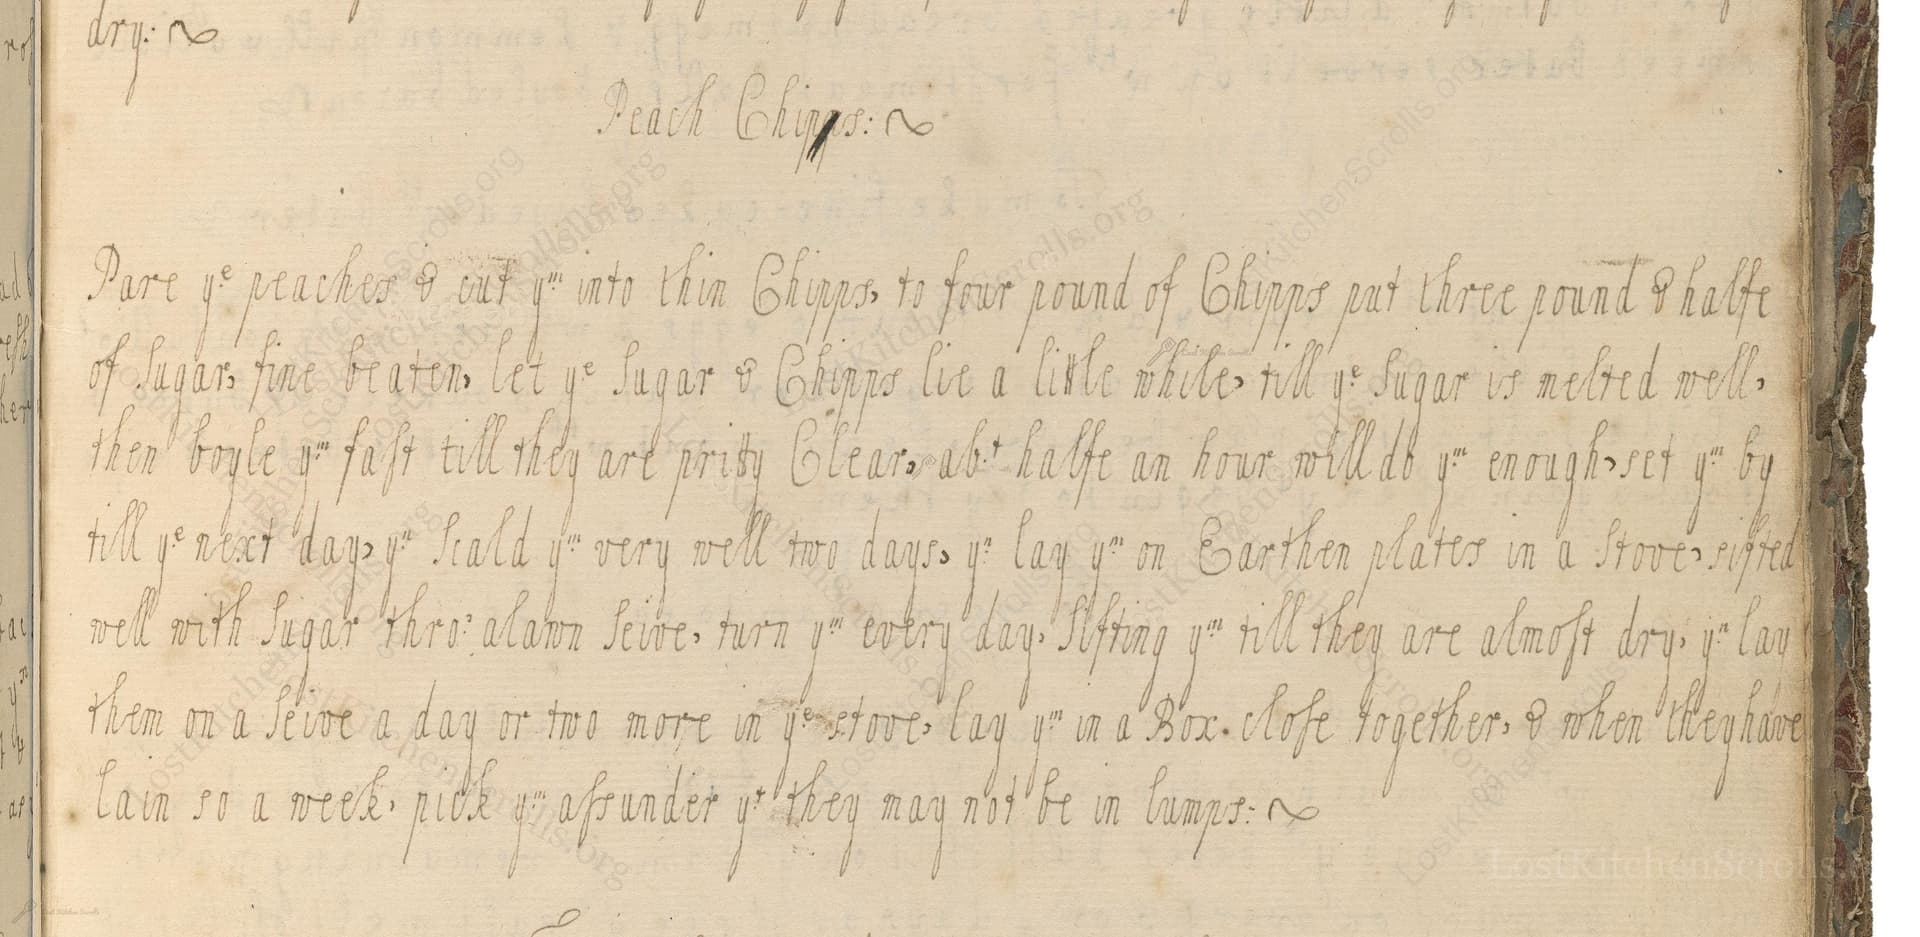 dry:
Peach Chipps:
Pare yᵉ peaches & cut yᵐ into thin Chipps, to four pound of Chipps put three pound & halfe
of Sugar, fine beaten, let yᵉ Sugar & Chipps lie a little while, till yᵉ Sugar is melted well,
then boyle yᵐ faſt till they are pritty Clear, abᵗ halfe an hour will do yᵐ enough, set yᵐ by
till yᵉ next day, yⁿ Scald yᵐ very well two days, yⁿ lay yᵐ on Earthen plates in a Stove, sifted
well with Sugar thro: a lawn Seive, turn yᵐ every day, Sifting yᵐ till they are almoſt dry, yⁿ lay
them on a Seive a day or two more in yᵉ stove, lay yᵐ in a Box. cloſe together, & when they have
lain so a week, pick yᵐ aſsunder yᵗ they may not be in lumps:
LostKitchenScrolls.